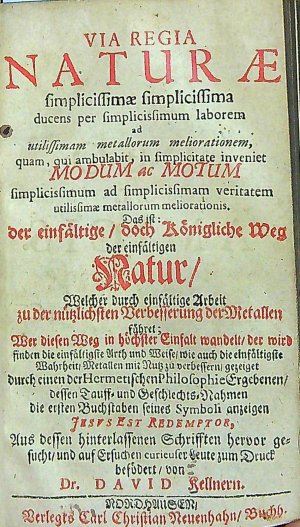 VIA REGIA
NATURÆ
simplicissimæ simplicissima
ducens per simplicisimum laborem
ad
utilissimam metallorum meliorationem,
quam, qui ambulabit, in simplicitate inveniet
MODUM ac MOTUM
simplicissimum ad simplicissimam veritatem
utilissimæ metallorum meliorationis.
Das ist:
der einfältige/ doch Königliche Weg
der einfältigen
Natur/
Welcher durch einfältige Arbeit
zu der nützlichsten Verbesserung der Metallen
führet;
Wer diesen Weg in höchster Einfalt wandelt/ der wird
finden die einfältigste Arth und Weise/ wie auch die einfältigste
Wahrheit/ Metallen mit Nutz zu verbessern/ gezeiget
durch einen der Hermetischen Philosophie Ergebenen/
dessen Tauff- und Geschlechts-Nahmen
die ersten Buchstaben seines Symboli anzeigen
JESVS EST REDEMPTOR,
Aus dessen hinterlassenen Schrifften hervor ge-
sucht/ und auf Ersuchen curieuser Leute zum Druck
befödert/ von
Dr. DAVID Kellnern.
NORDHAUSEN/
Verlegts Carl Christian Neuenhahn/ Buchh.